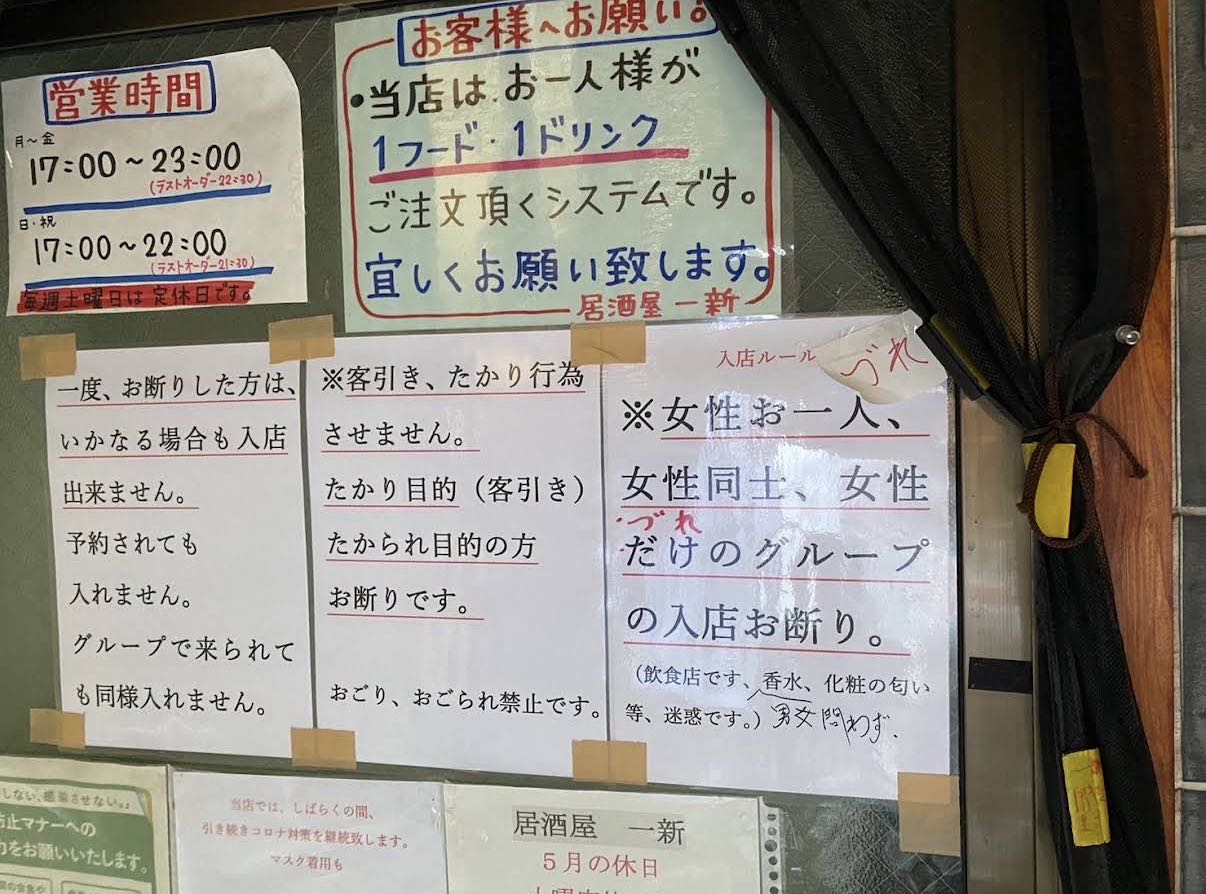 営業時間
月〜金
17:00〜23:00
(ラストオーダー22:30)
日・祝
17:00〜22:00
(ラストオーダー21:30)
毎週土曜日は定休日です。
お客様へお願い!
•当店は、お一人様が
1フード・1ドリンク
ご注文頂くシステムです。
宜しくお願い致します。
居酒屋 一新
一度、お断りした方は、
いかなる場合も入店
出来ません。
予約されても
入れません。
グループで来られて
も同様入れません。
※客引き、たかり行為
させません。
たかり目的（客引き）
たかられ目的の方
お断りです。
おごり、おごられ禁止です。
入店ルール
づれ
※女性お一人、
女性同士、女性
づれ
だけのグループ
の入店お断り。
（飲食店です、香水、化粧の匂い
等、迷惑です。）男女問わず.
しない、感染させない。」
防止マナーへの
力をお願いいたします。
当店では、しばらくの間、
引き続きコロナ対策を継続致します。
マスク着用も
居酒屋 一新
5月の休日